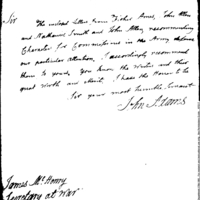 Sir
The inclosed Letter from Fisher Ames, John Allen
and Nathaniel Smith and John Allen recommending
Character for Commissions in the Army deserve
our particular attention, I accordingly recommend
them to you, You know the Writer and their
great Worth and Merit, I have the Honor to be
Sir your most humble Servant
John Adams
James McHenry
Secretary at War